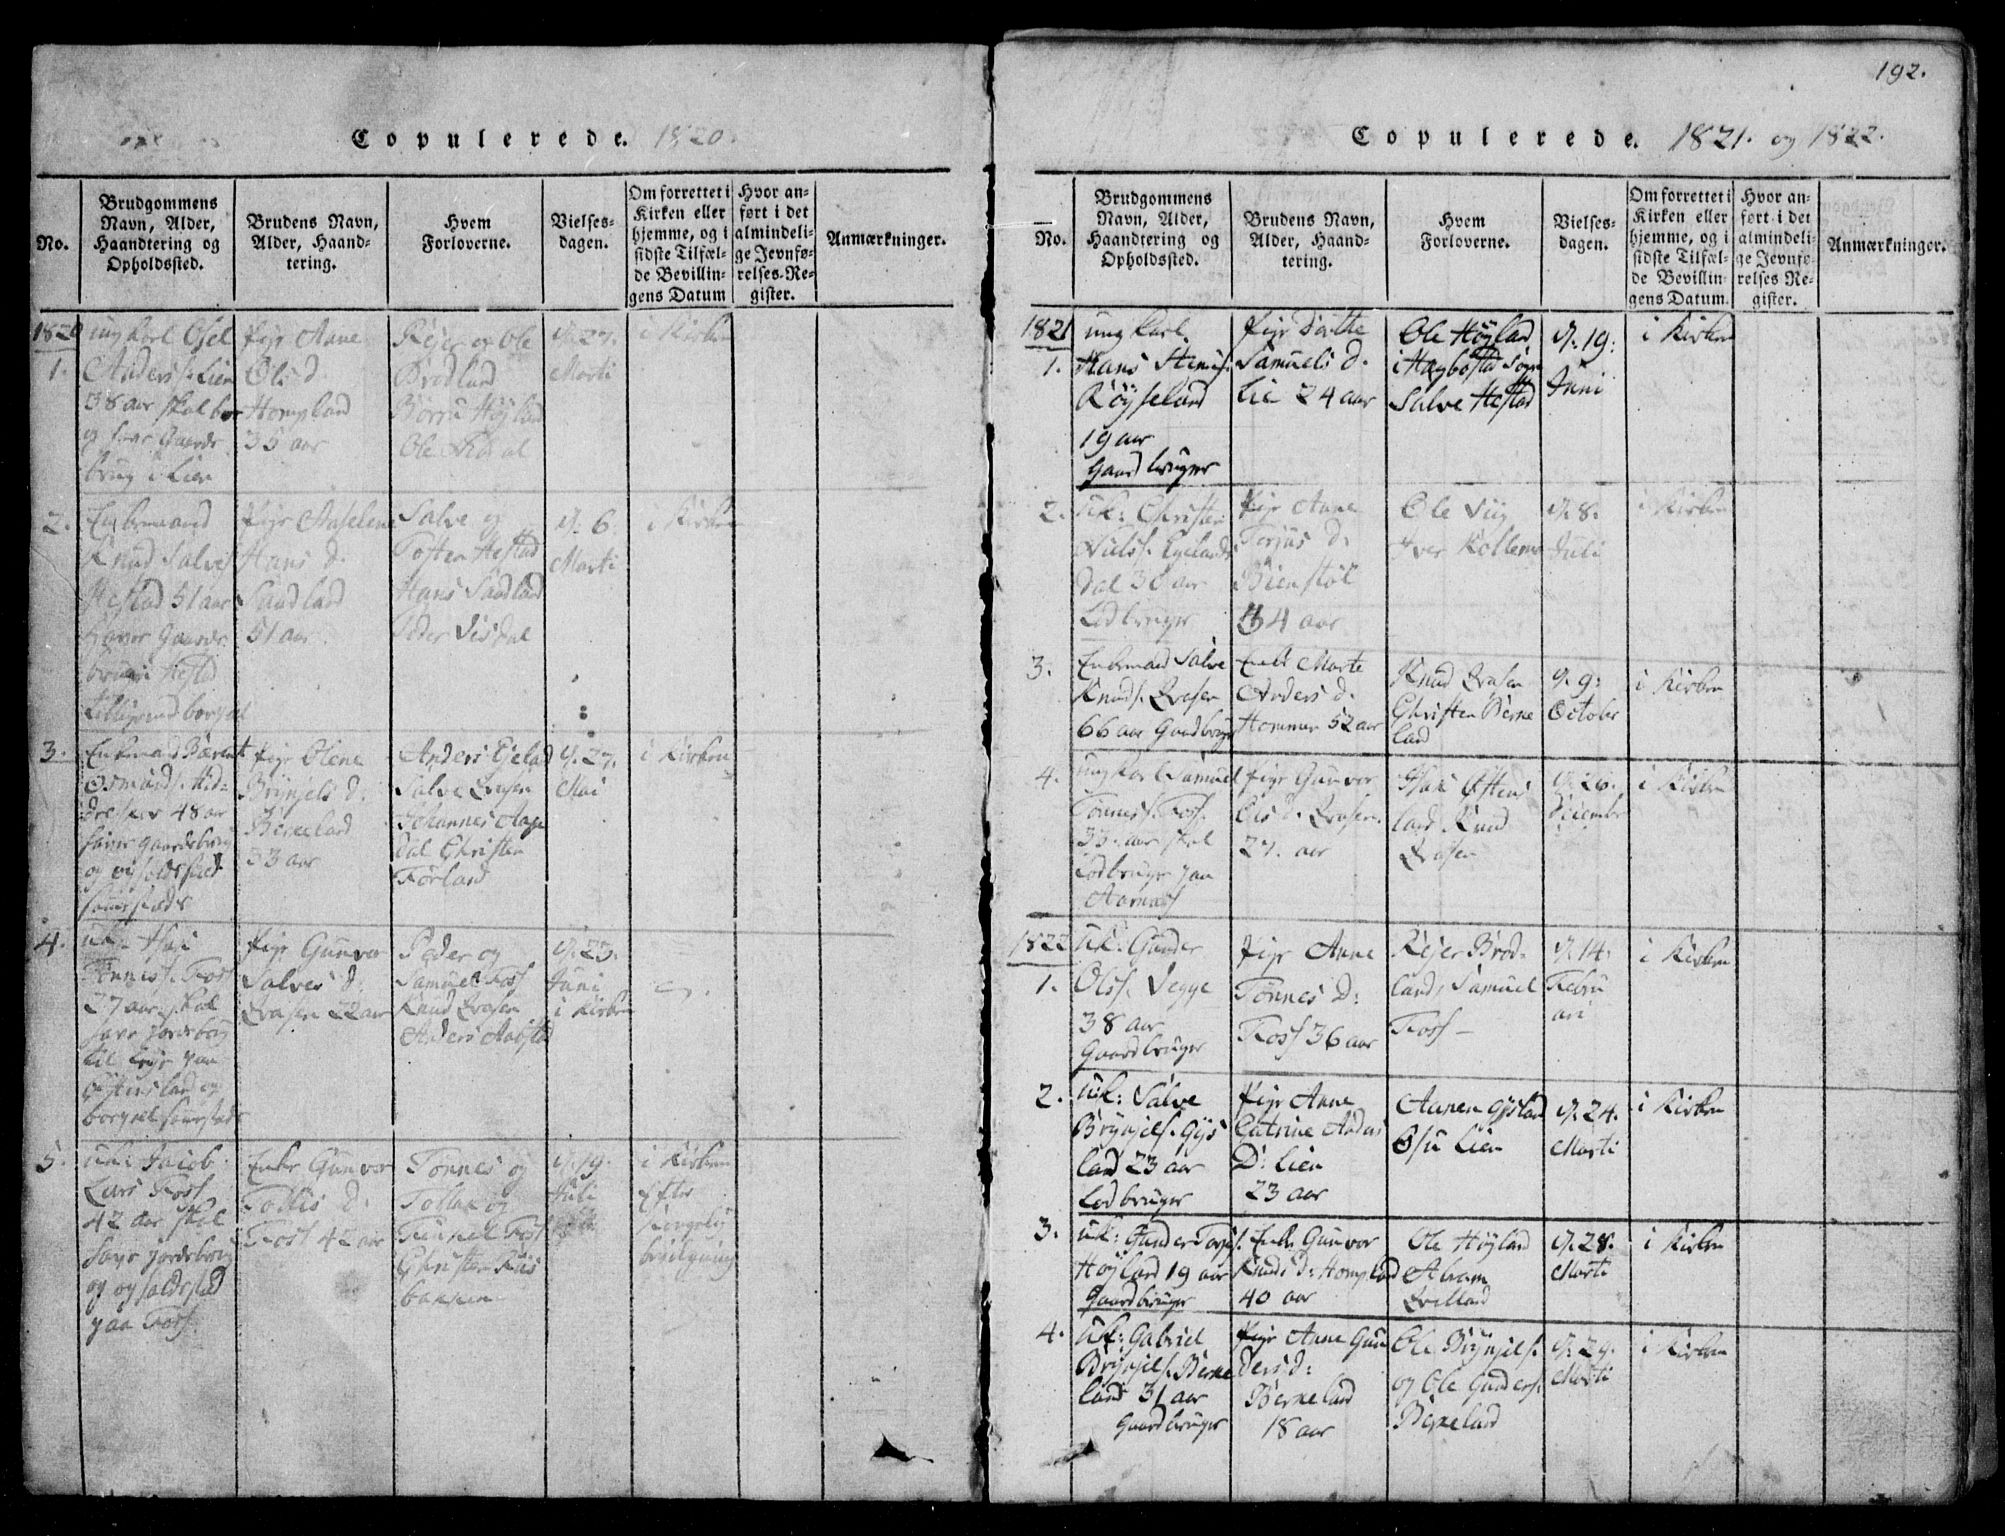 Copulerede. 1820.
No.
Brudgommens
Navn, Alder,
Haandtering og
Opholdssted.
Brudens Navn,
Alder, Haand-
tering.
Hvem
Forloverne.
Vielses-
dagen.
Om forrettet i
Kirken eller
hjemme, og i
sidste Tilfæl-
de Bevillin-
gens Datum
Hvor an-
ført i det
almindeli-
ge Jevnfø-
relses-Re-
gister.
Anmærkninger.
1820
1.
ung karl Osel
Anders s. Lien
38 aar skal bo
og have Gaards
brug i Lien
Pige Anne
Ols d.
Hompland
35 aar
Reier og Ole
Brødland
Børru Høyland
d. 27.
Marti
i Kirken
2.
Enkemand
Knud Salves
Hestad 51 aar
haver Gaards
brug i Hestad
Pige Aaselene
Hans d.
Sandland
51 aar
Salve og
Tosten Hestad
Hans Sandland
Peder Visdal
d. 6
Marti
i Kirken
3.
Enkemand Bærent
Osmunds.
48 aar
haver gaardsbrug
og opholdssted
sammesteds
Pige Olene
Brynjels d.
Berneland
33 aar
Anders Eieland
Salve Qvasen
Johannes Aage
dal Christen
Førland
d. 27.
Mai
i Kirken
4.
uk.
Tønnes s. Foss
27 aar skal
have jordebrug
til Leye paa
Øystensland og
bopæl sammesteds
Pige Gunvor
Salves d.
Qvasen 22 aar
Peder og
Samuel Foss
Knud Qvasen
Anders
d. 23.
Juni
i Kirken
5.
uk. Jacob
Lars Foss
42 aar skal
have jordebrug
og opholdssted
paa Foss
Enke Gunvor
Tollis d.
Foss 42 aar
Tønnes og
Tollak og
Gunuel Foss
Christen Riis
bakken
d. 19.
Juli
i Kirken
efter
Kongelig
bevilgning
192.
Copulerede. 1821. og 1822.
No.
Brudgommens
Navn, Alder,
Haandtering og
Opholdssted.
Brudens Navn,
Alder, Haand-
tering.
Hvem
Forloverne.
Vielses-
dagen.
Om forrettet i
Kirken eller
hjemme, og i
sidste Tilfæl-
de Bevillin-
gens Datum.
Hvor an-
ført i det
almindeli-
ge Jevnfø-
relses Re-
gister.
Anmærkninger.
1821
1.
ung karl.
Hans Stenes.
Røyseland
19 aar
Gaardbruger
Pige Dorthe
Samuels d.
Lie 24 aar
Ole Høyland
i Hægbostad Sogn
Salve Hestad
d. 19:
Juni
i Kirken
2.
uk: Christen
Nielss. Egelands
dal 30 aar
Lodbruger
Pige Anne
Terjus d:
Bienstøl
34 aar
Ole Siig
Iver Kollemo
d. 8.
Juli
i Kirken
3.
Enkemand Salve
Knuds. Qvasen
66 aar Gaardbruger
Enke Marte
Anders d.
Hommen 52 aar
Knud Qvasen
Christen Berne
land
d. 9:
October
i Kirken
4.
ung karl Samuel
Tønness. Foss.
33. aar skal
Lodbruger paa
Aarnæss
Pige Gunvor
Ols d. Qvasen.
27. aar
Isak Østens
land Knud
Qvasen
d. 26.
Decembr
i Kirken
1822
1.
uk. Gunder
Olss. Vegge
38 aar
Gaardbruger
Pige Anne
Tønnes D:
Foss 36 aar
Reier Brød-
land, Samuel
Foss -
d. 14.
Febru
ari
i Kirken
2.
uk: Salve
Brynjels. Gys
land 23 aar
Lodbruger
Pige Anne
Catrine Anders
D: Lien
23 aar
Aanen Gysland
Osu Lien
d. 24.
Marti
i Kirken
3.
uk: Gunder Torjs.
Høyland 19 aar
Gaardbruger
Enke Gunvor
Knuds D: Hompland
40 aar
Ole Høyland
Abram
Qvelland
d. 28.
Marti
i Kirken
4.
uk: Gabriel
Brynjels. Berne
land 31 aar
Gaardbruger
Pige Anne Gun
ders d:
Berneland
18 aar
Ole Brynjels.
og Ole Gunders.
Berneland
d. 29.
Marti
i Kirken